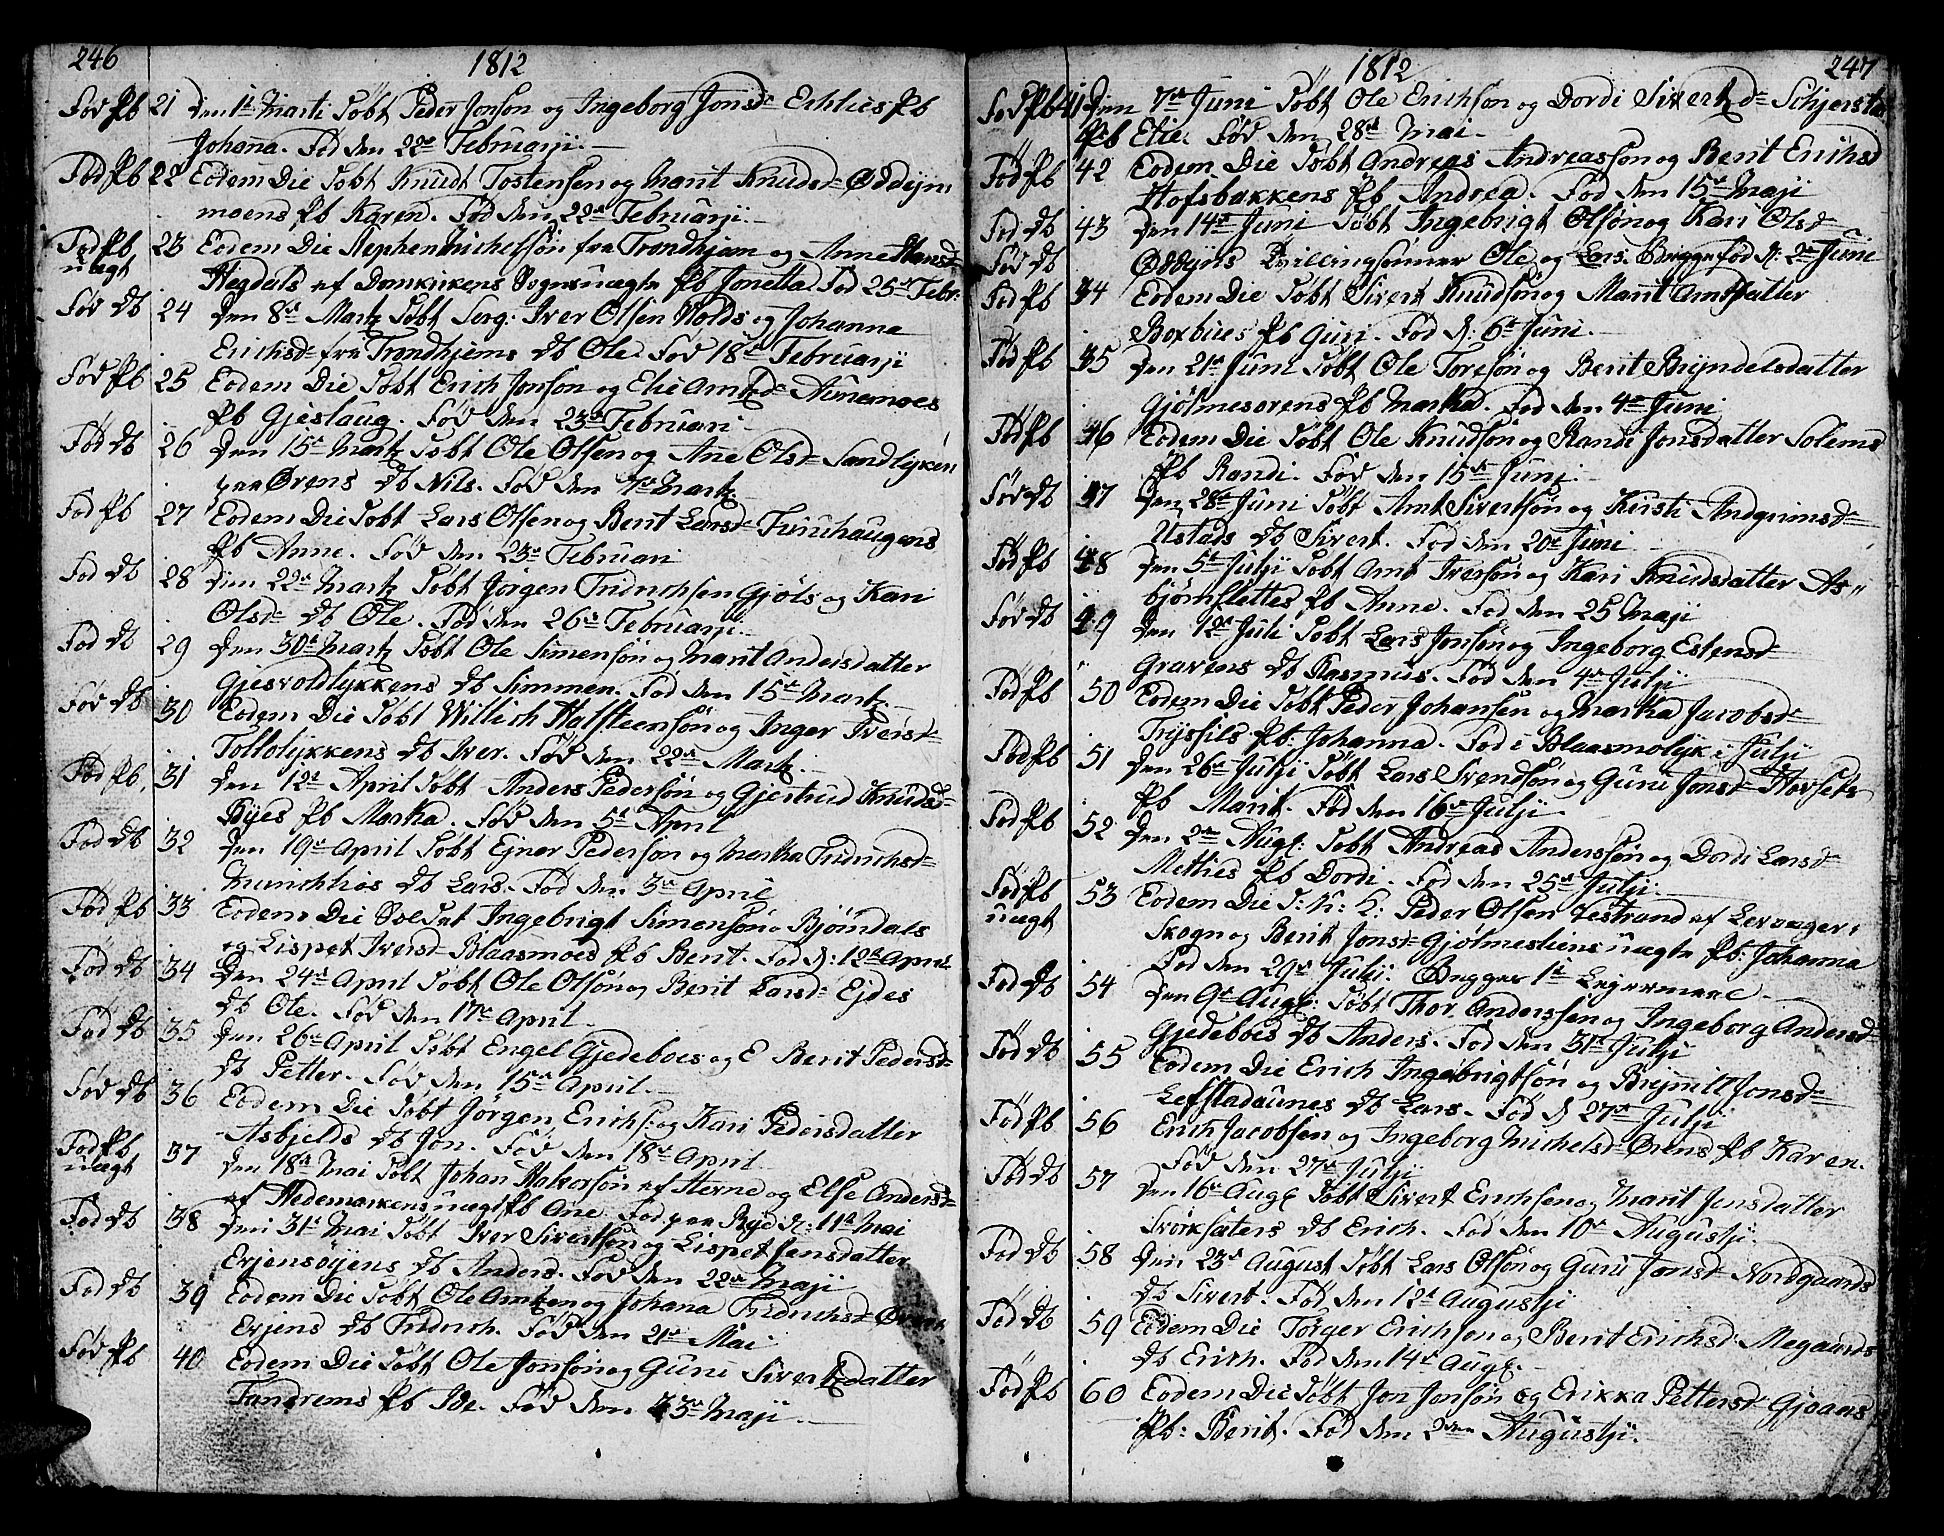 246
1812
Fød Pb 21 Den 1te Marti Døbt Peder Jonsøn og Ingeborg Jonsd Echlies Pb
Johana. Fød den 22de Februarji.
Fød Pb 22 Eodem Die Døbt Knudt Tostensen og Marit Knudsd Øddyn
moens Pb Karen. Fød den 22de Februarji.
Fød Pb 23 Eodem Die Stephen Michelsøn fra Trondhjem og Anne Hansd
uægt Hegdals af Domkirkens Sogn uægte Pb Jonetta. Fød 25de Febr.
Fød Db 24 Den 8de Martz Døbt Serg: Iver Olsen Wolds og Johanna
Erichsd fra Trondhjems Db Ole. Fød 18de Februarji
Fød Pb 25 Eodem Die Døbt Erich Jonsøn og Elie Arntsd Aunemoes
Pb Gjeslaug. Fød den 23de Februari
Fød Db 26 Den 15de Martz Døbt Ole Olsen og Ane Olsd Sandlyken
paa Ørens Db Nils. Fød den 7de Martz
Fød Pb 27 Eodem Die Døbt Lars Olsen og Berit Larsd Furuhaugens
Pb Anne. Fød den 23de Februari
Fød Db 28 Den 22de Martz Døbt Jørgen Fridrichsen Gjøls og Kari
Olsd Db Ole. Fød den 26de Februarji.
Fød Db 29 Den 30te Martz Døbt Ole Simensøn og Marit Andersdatter
Gjesvoldlykkens Db Simmen. Fød den 15de Martz
Fød Db 30 Eodem Die Døbt Willich Halfsteensøn og Inger Iversd
Tollolykkens Db Iver. Fød den 22de Martz.
Fød Pb. 31 Den 12te April Døbt Anders Pedersøn og Gjertrud Knudsd
Byes Pb Marka. Fød den 5te April
Fød Db 32 Den 19de April Døbt Ejner Pedersøn og Marka Fridrichsd
Db Lars. Fød den 3de April
Fød Pb 33 Eodem Die Soldat Ingebrigt Simensøn Bjørndals
og Lispet Iversd Blaasmoed Pb Berit. Fød d: 12te April
Fød Db 34 Den 24de April Døbt Ole Olsøn og Berit Larsd Ejdes
Db Ole. Fød den 17de April.
Fød Db 35 Den 26de April Døbt Engel Gjedeboes og E Berit Pedersd
Db Petter. Fød den 15de April.
Fød Db 36 Eodem Die Døbt Jørgen Erichs: og Kari Pedersdatter
Asbjelds Db Jon. Fød den 18de April
Fød Pb 37 Den 18de Mai Døbt Johan Hakorsøn af Herne og Else Andersd
uægt af Hedemarken uægt Pb Ane. Fød paa Bye d: 11te Mai
Fød Db 38 Den 31te Mai Døbt Iver Sivertsøn og Lispet Jensdatter
Evjensøyens Db Anders. Fød den 22de Maji
Fød Db 39 Eodem Die Døbt Ole Arntsen og Johana Fridrichsd
Evjens Db Fridrich. Fød den 21de Mai
Fød Pb 40 Eodem Die Døbt Ole Jonsøn og Guru Sivertsdatter
Tandrems Pb Ide. Fød den 23de Maji.
1812
247
Fød Pb 41 Den 7de Juni Døbt Ole Erichsøn og Dordi Sivertsd Schjersta
Pb Elie. Fød den 28de Mai.
Fød Pb 42 Eodem Die Døbt Andreas Andreassøn og Berit Erichsd
Hofsbakkens Pb Andrea. Fød den 15de Maji
Fød Db 43 Den 14de Juni Døbt Ingebrigt Olsøn og Kari Olsd
Fød Db Øddyns Tvillingsønner Ole og Lars. Begge fød d: 2de Juni
Fød Pb 44 Eodem Die Døbt Sivert Knudsøn og Marit Arntsdatter
Boxbues Pb Guri. Fød d: 6te Juni.
Fød Pb 45 Den 21de Juni Døbt Ole Toresøn og Berit Bryndelsdatter
Gjølmesørens Pb Marka. Fød den 4de Juni
Fød Pb 46 Eodem Die Døbt Ole Knudsøn og Randi Jonsdatter Solems
Pb Randi. Fød den 15de Juni.
Fød Db 47 Den 28de Juni Døbt Arnt Sivertsøn og Kirsti Andgrimsd
Ustads Db Sivert. Fød den 20de Juni
Fød Pb 48 Den 5te Julji Døbt Arnt Iversøn og Kari Knudsdatter As"
bjørnslettes Pb Anne. Fød den 25 Maji
Fød Db 49 Den 12te Juli Døbt Lars Jonsøn og Ingeborg Estensd
" Gravens Db Rasmus. Fød den 4de Julji
Fød Pb 50 Eodem Die Døbt Peder Johansen og Marka Jacobsd
Tryssils Pb. Johanna. Fød i Blaasmolyk i Julji
Fød Pb 51 Den 26de Julji Døbt Lars Svendsøn og Guru Jonsd Hovsets
Pb Marit. Fød den 16de Julji.
Fød Pb 52 Den 2den Augl: Døbt Andreas Anderssøn og Dordi Larsd
Metlies Pb Dordi. Fød den 25de Julji.
Fød Pb 53 Eodem Die S: K: L: Peder Olsen Zestrand af Levanger
uægt Skogn og Berit Jonsd Gjølmesliens uægte Pb: Johanna
Fød den 29de Julji. Begges 1te Lejermaal.
Fød Db 54 Den 9de Augl: Døbt Thor Anderssen og Ingeborg Andersd
Gjedeboes Db Anders. Fød den 31te Julji
Fød Db 55 Eodem Die Erich Ingebrigtsøn og Brynill Jonsd
Lefstadaunes Db Lars. Fød d 27de Julji
Fød Pb 56 Erich Jacobsen og Ingeborg Michelsd Ørens Pb Karen.
Fød den 27de Julji
Fød Db 57 Den 16de Augl Døbt Sivert Erichsen og Marit Jonsdatter
Svorksæters Db Erich. Fød den 10de Augustji.
Fød Db 58 Den 23de August Døbt Lars Olsøn og Guru Jonsd Nordgaards
Db Sivert. Fød den 12te Augustji
Fød Db 59 Eodem Die Torger Erichsøn og Berit Erichsd: Megaards
Db Erich. Fød den 14de Augl.
Fød Pb 60 Eodem Die Døbt Jon Jonsøn og Erikka Pettersd Gjoaas
Pb: Berit. Fød den 2den Augustji.